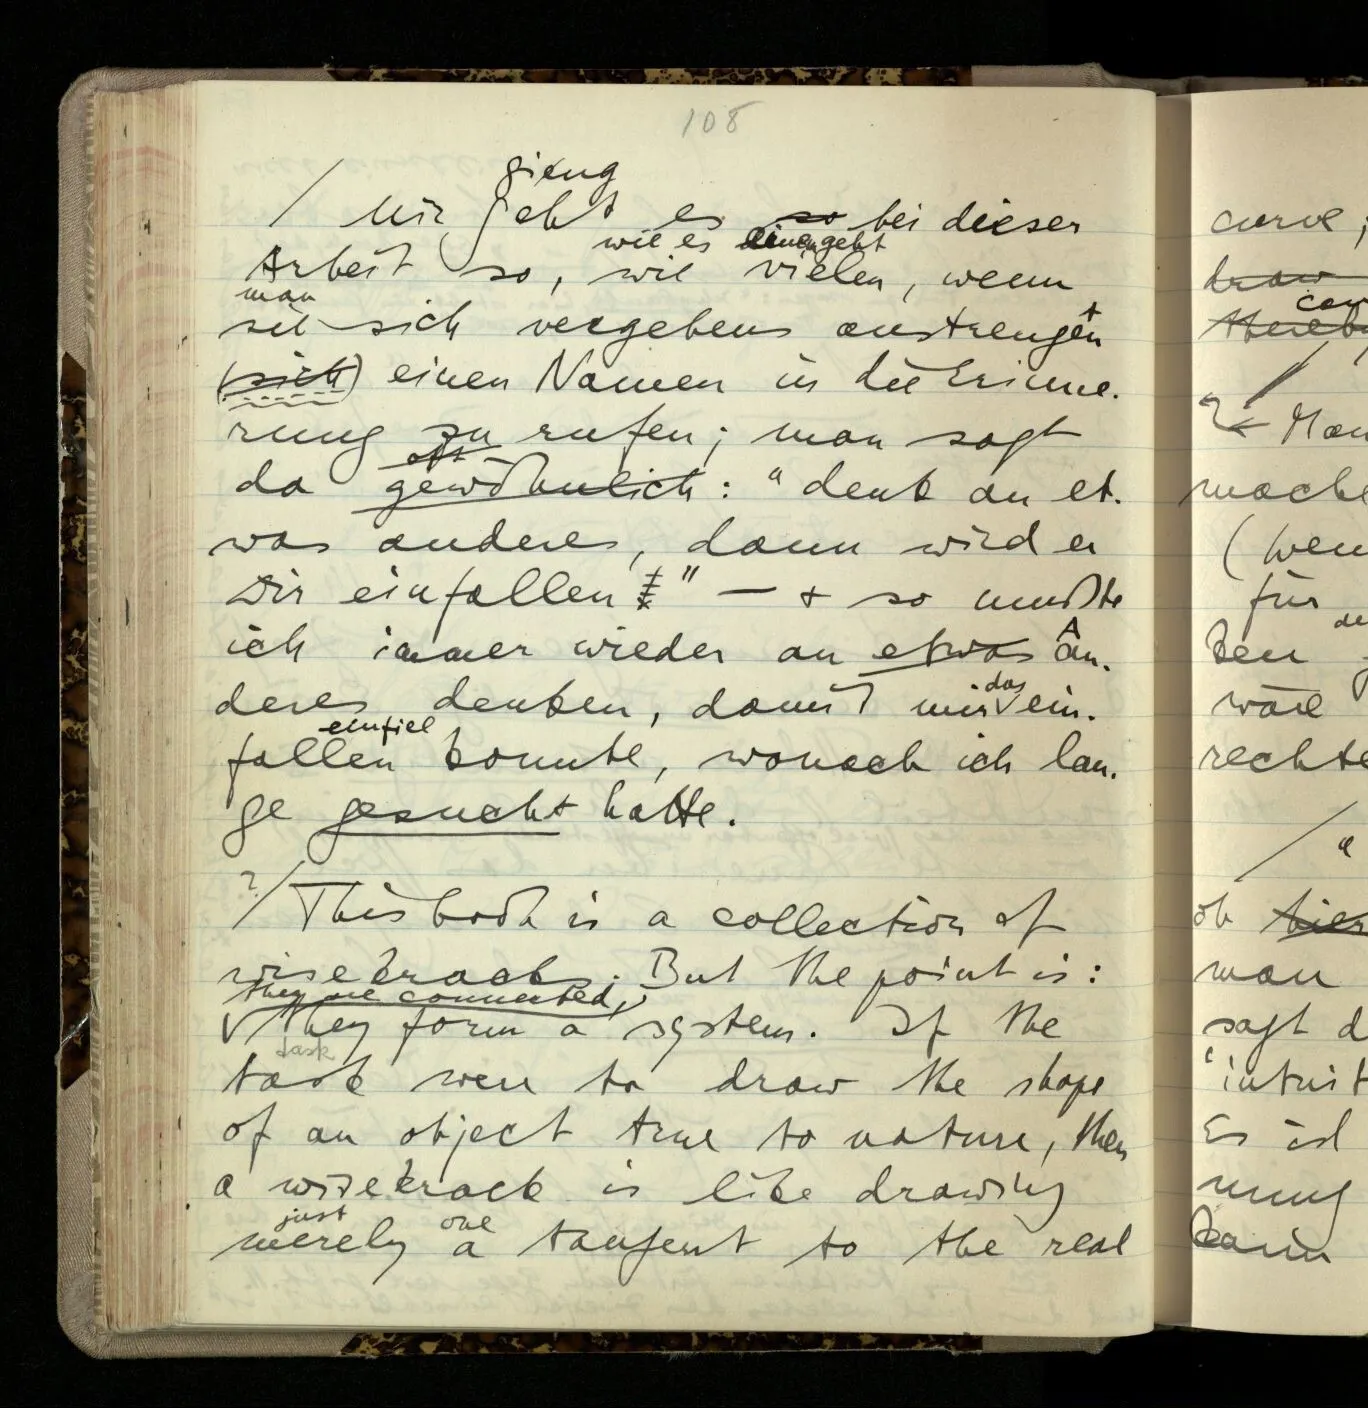 108
gieng
/ Mir geht es so bei dieser
wie es einem geht
Arbeit so, wie vielen, wenn
man
sie sich vergebens anstrengen
t
(sich) einen Namen in die Erinne-
rung zu rufen; man sagt
oft
da gewöhnlich: "denk an et-
was anderes, dann wird er
Dir einfallen" — + so mußte
ich immer wieder an etwas An-
das
deres denken, damit mir ein-
einfiel
fallen konnte, wonach ich lan-
ge gesucht hatte.
?/ This book is a collection of
wisecracks. But the point is:
they are connected,
they form a system. If the
task
task were to draw the shape
of an object true to nature, then
a wisecrack is like drawing
just one
merely a tangent to the real
curve;
draw
Man
mache
(wen
für
ken
wäre
rechte
/ "
ob hier
man
sagt d
'intuit
Es ist
nung
kann